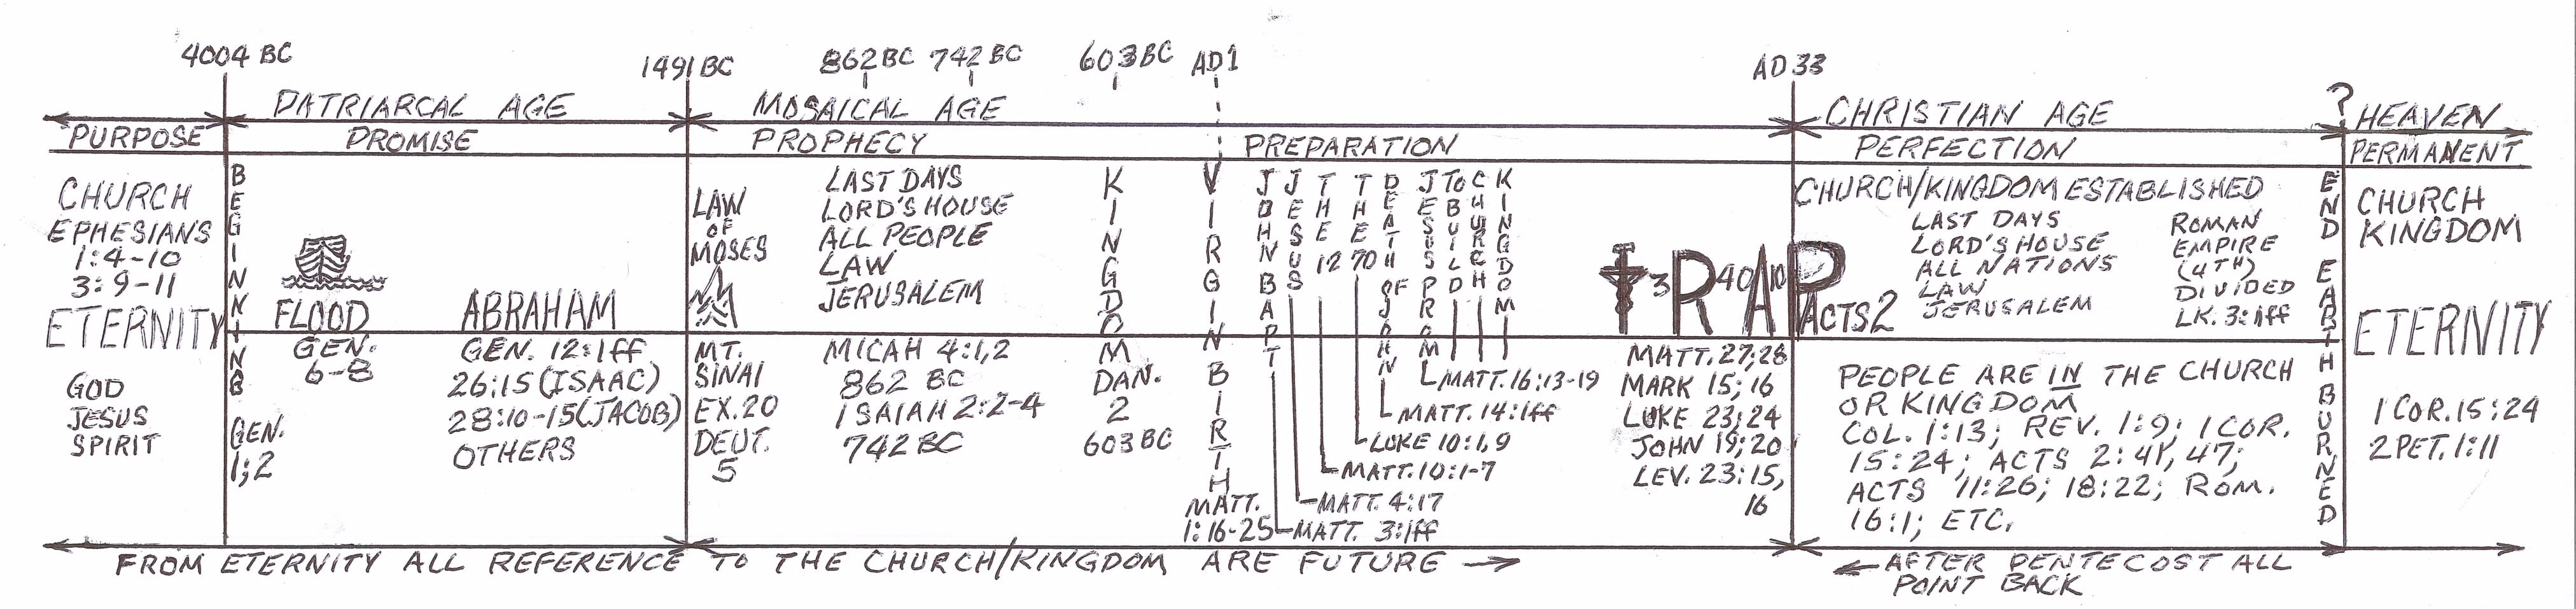 4004 BC
1491 BC
862 BC 742 BC
603 BC
AD 1
AD 33
PATRIARCAL AGE
MOSAICAL AGE
CHRISTIAN AGE
?
HEAVEN
PURPOSE
PROMISE
PROPHECY
PREPARATION
PERFECTION
PERMANENT
CHURCH
EPHESIANS
1:4-10
3:9-11
ETERNITY
GOD
JESUS
SPIRIT
BEGINNING
GEN.
1;2
FLOOD
GEN.
6-8
ABRAHAM
GEN. 12:1ff
26:15 (ISAAC)
28:10-15 (JACOB)
OTHERS
LAW
OF
MOSES
MT.
SINAI
EX. 20
DEUT.
5
LAST DAYS
LORD'S HOUSE
ALL PEOPLE
LAW
JERUSALEM
MICAH 4:1,2
862 BC
ISAIAH 2:2-4
742 BC
KINGDOM
DAN.
2
603 BC
VIRGIN BIRTH
MATT.
1:16-25
JOHN BAPT
JESUS
THE 12
THE 70
DEATH OF JOHN
JESUS PROM
TO BUILD
CHURCH
KINGDOM
MATT. 16:13-19
MATT. 14:1ff
LUKE 10:1,9
MATT. 10:1-7
MATT. 4:17
MATT. 3:1ff
3 R 40 A 10 P
ACTS 2
MATT. 27;28
MARK 15; 16
LUKE 23;24
JOHN 19;20
LEV. 23:15,
16
CHURCH/KINGDOM ESTABLISHED
LAST DAYS
LORD'S HOUSE
ALL NATIONS
LAW
JERUSALEM
ROMAN
EMPIRE
(4TH)
DIVIDED
LK. 3:1ff
PEOPLE ARE IN THE CHURCH
OR KINGDOM
COL. 1:13; REV. 1:9; 1 COR.
15:24; ACTS 2:41, 47;
ACTS 11:26; 18:22; ROM.
16:1; ETC.
END EARTH BURNED
CHURCH
KINGDOM
ETERNITY
1 COR. 15:24
2 PET. 1:11
FROM ETERNITY ALL REFERENCE TO THE CHURCH/KINGDOM ARE FUTURE
AFTER PENTECOST ALL
POINT BACK